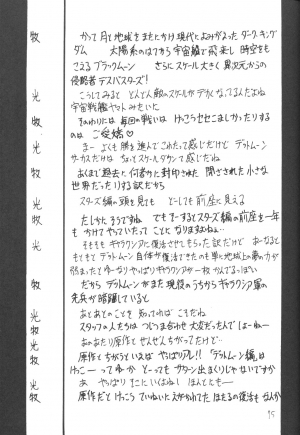 牧 かつて月と地球をまたにかけ現代によみがえったダーク・キング
ダム 太陽系のはてから宇宙船で飛来し時空をも
こえるブラックムーン さらにスケール大きく異次元からの
侵略者デスバスターズ!
光 こうしてみると どんどん敵のスケールがデカくなってるんだよね
宇宙戦艦ヤマトみたいに
牧 そのわりには毎回の戦いは けっこうせせこましかったりする
のは ご愛嬌♡
光 まーよくも勝ち進んでこれたって感じだけど デッドムーン
サーカスだけは ちょっとスケールダウンて感じだね
牧 あくまで過去に何者かに封印された 閉ざされた小さな
世界だったりする訳だから
光 スターズ編の頭を見ても どーしても前座に見える
牧 たしかにそうですね でもすーするとスターズ編の前座を一年
もかけてやっていたって ことになりますよねェ…
光 そもそもギャラクシアに復活させてもらった訳だけど あーなると
もともとデッドムーン自体が復活できたのも単に地球上の夢の力が
弱まったとゆーより やっぱりギャラクシアが一枚かんでるっぽい
牧 だから デッドムーンがまだ現役のうちからギャラクシア軍の
先兵が暗躍していると
光 あとあとのことを 知ってれば こそだね
牧 スタッフの人たちは つじつま合わせ 大変だったんでしょーねー
光 あのあたり原作と ぜんぜんちがってたし
牧 原作とちがうといえば やっぱりアレ!!「デッドムーン編」は
けっこーって ゆーか とーってもサターン出まくりじゃないですか
光 あ やっぱりそこにいくわね しほんとにもー
牧 原作だと けっこう ていねいにえがかれてた ほたるの復活も ぜんぜん
95